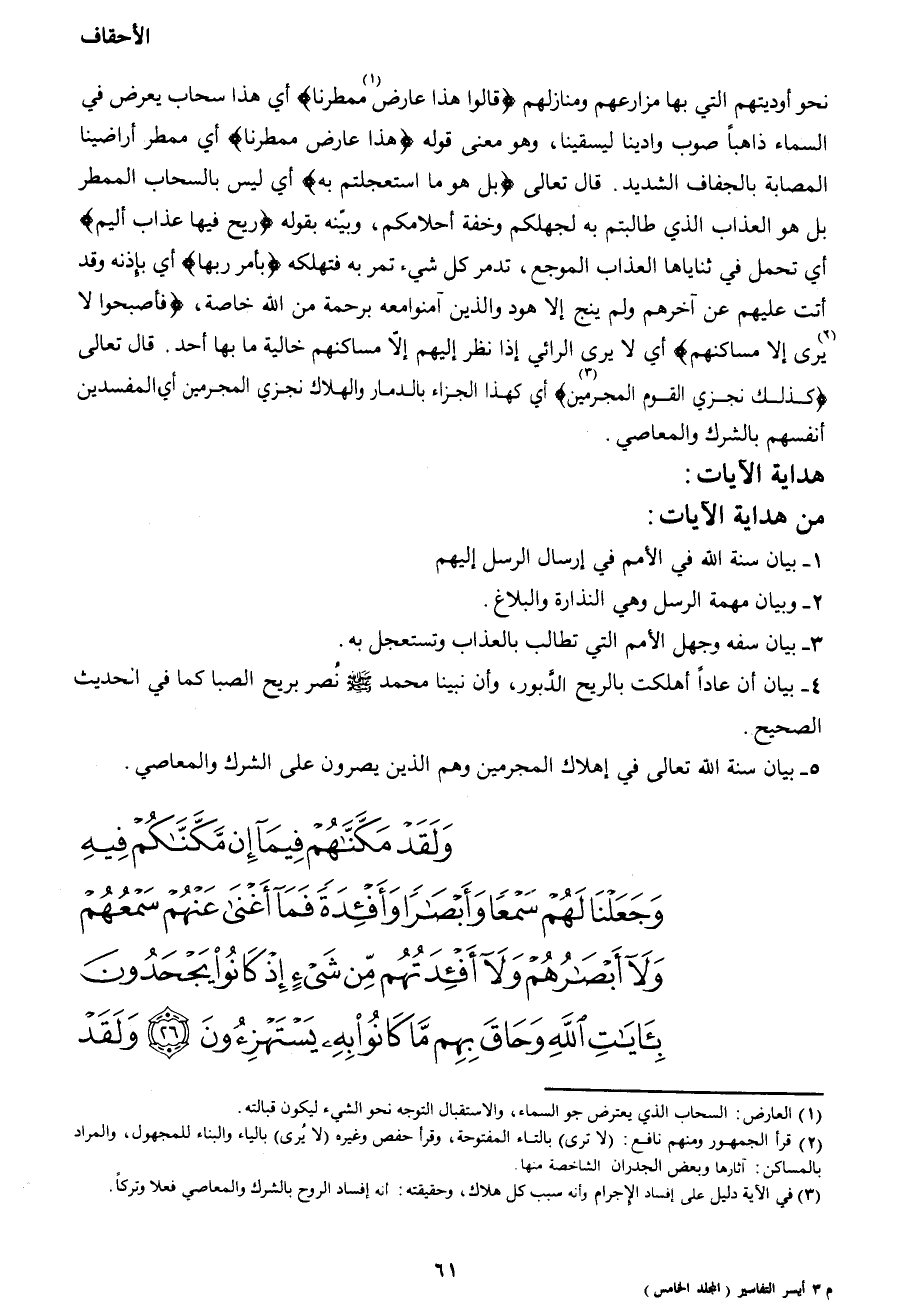 الأحقاف
نحو أوديتهم التي بها مزارعهم ومنازلهم ﴿قالوا هذا عارض ممطرنا﴾(١) أي هذا سحاب يعرض في
السماء ذاهباً صوب وادينا ليسقينا، وهو معنى قوله ﴿هذا عارض ممطرنا﴾ أي ممطر أراضينا
المصابة بالجفاف الشديد. قال تعالى ﴿بل هو ما استعجلتم به﴾ أي ليس بالسحاب الممطر
بل هو العذاب الذي طالبتم به لجهلكم وخفة أحلامكم، وبيّنه بقوله ﴿ريح فيها عذاب أليم﴾
أي تحمل في ثناياها العذاب الموجع، تدمر كل شيء تمر به فتهلكه ﴿بأمر ربها﴾ أي بإذنه وقد
أتت عليهم عن آخرهم ولم ينج إلا هود والذين آمنوامعه برحمة من الله خاصة، ﴿فأصبحوا لا
يرى(٢) إلا مساكنهم﴾ أي لا يرى الرائي إذا نظر إليهم إلاّ مساكنهم خالية ما بها أحد. قال تعالى
﴿كذلك نجزي القوم المجرمين﴾(٣) أي كهذا الجزاء بالدمار والهلاك نجزي المجرمين أي المفسدين
أنفسهم بالشرك والمعاصي.
هداية الآيات:
من هداية الآيات:
١- بيان سنة الله في الأمم في إرسال الرسل إليهم
٢- وبيان مهمة الرسل وهي النذارة والبلاغ.
٣- بيان سفه وجهل الأمم التي تطالب بالعذاب وتستعجل به.
٤- بيان أن عاداً أهلكت بالريح الدَّبور، وأن نبينا محمد ﷺ نُصر بريح الصبا كما في الحديث
الصحيح.
٥- بيان سنة الله تعالى في إهلاك المجرمين وهم الذين يصرون على الشرك والمعاصي.
وَلَقَدْ مَكَّنَّٰهُمْ فِيمَآ إِن مَّكَّنَّٰكُمْ فِيهِ
وَجَعَلْنَا لَهُمْ سَمْعًا وَأَبْصَٰرًا وَأَفْـِٔدَةً فَمَآ أَغْنَىٰ عَنْهُمْ سَمْعُهُمْ
وَلَآ أَبْصَٰرُهُمْ وَلَآ أَفْـِٔدَتُهُم مِّن شَىْءٍ إِذْ كَانُوا۟ يَجْحَدُونَ
بِـَٔايَٰتِ ٱللَّهِ وَحَاقَ بِهِم مَّا كَانُوا۟ بِهِۦ يَسْتَهْزِءُونَ ﴿٢٦﴾ وَلَقَدْ
(١) العارض: السحاب الذي يعترض جو السماء، والاستقبال التوجه نحو الشيء ليكون قبالته.
(٢) قرأ الجمهور ومنهم نافع: (لا ترى) بالتاء المفتوحة، وقرأ حفص وغيره (لا يُرى) بالياء والبناء للمجهول، والمراد
بالمساكن: آثارها وبعض الجدران الشاخصة منها.
(٣) في الآية دليل على إفساد الإجرام وأنه سبب كل هلاك، وحقيقته: أنه إفساد الروح بالشرك والمعاصي فعلا وتركاً.
٦١
م ٣ أيسر التفاسير (المجلد الخامس)